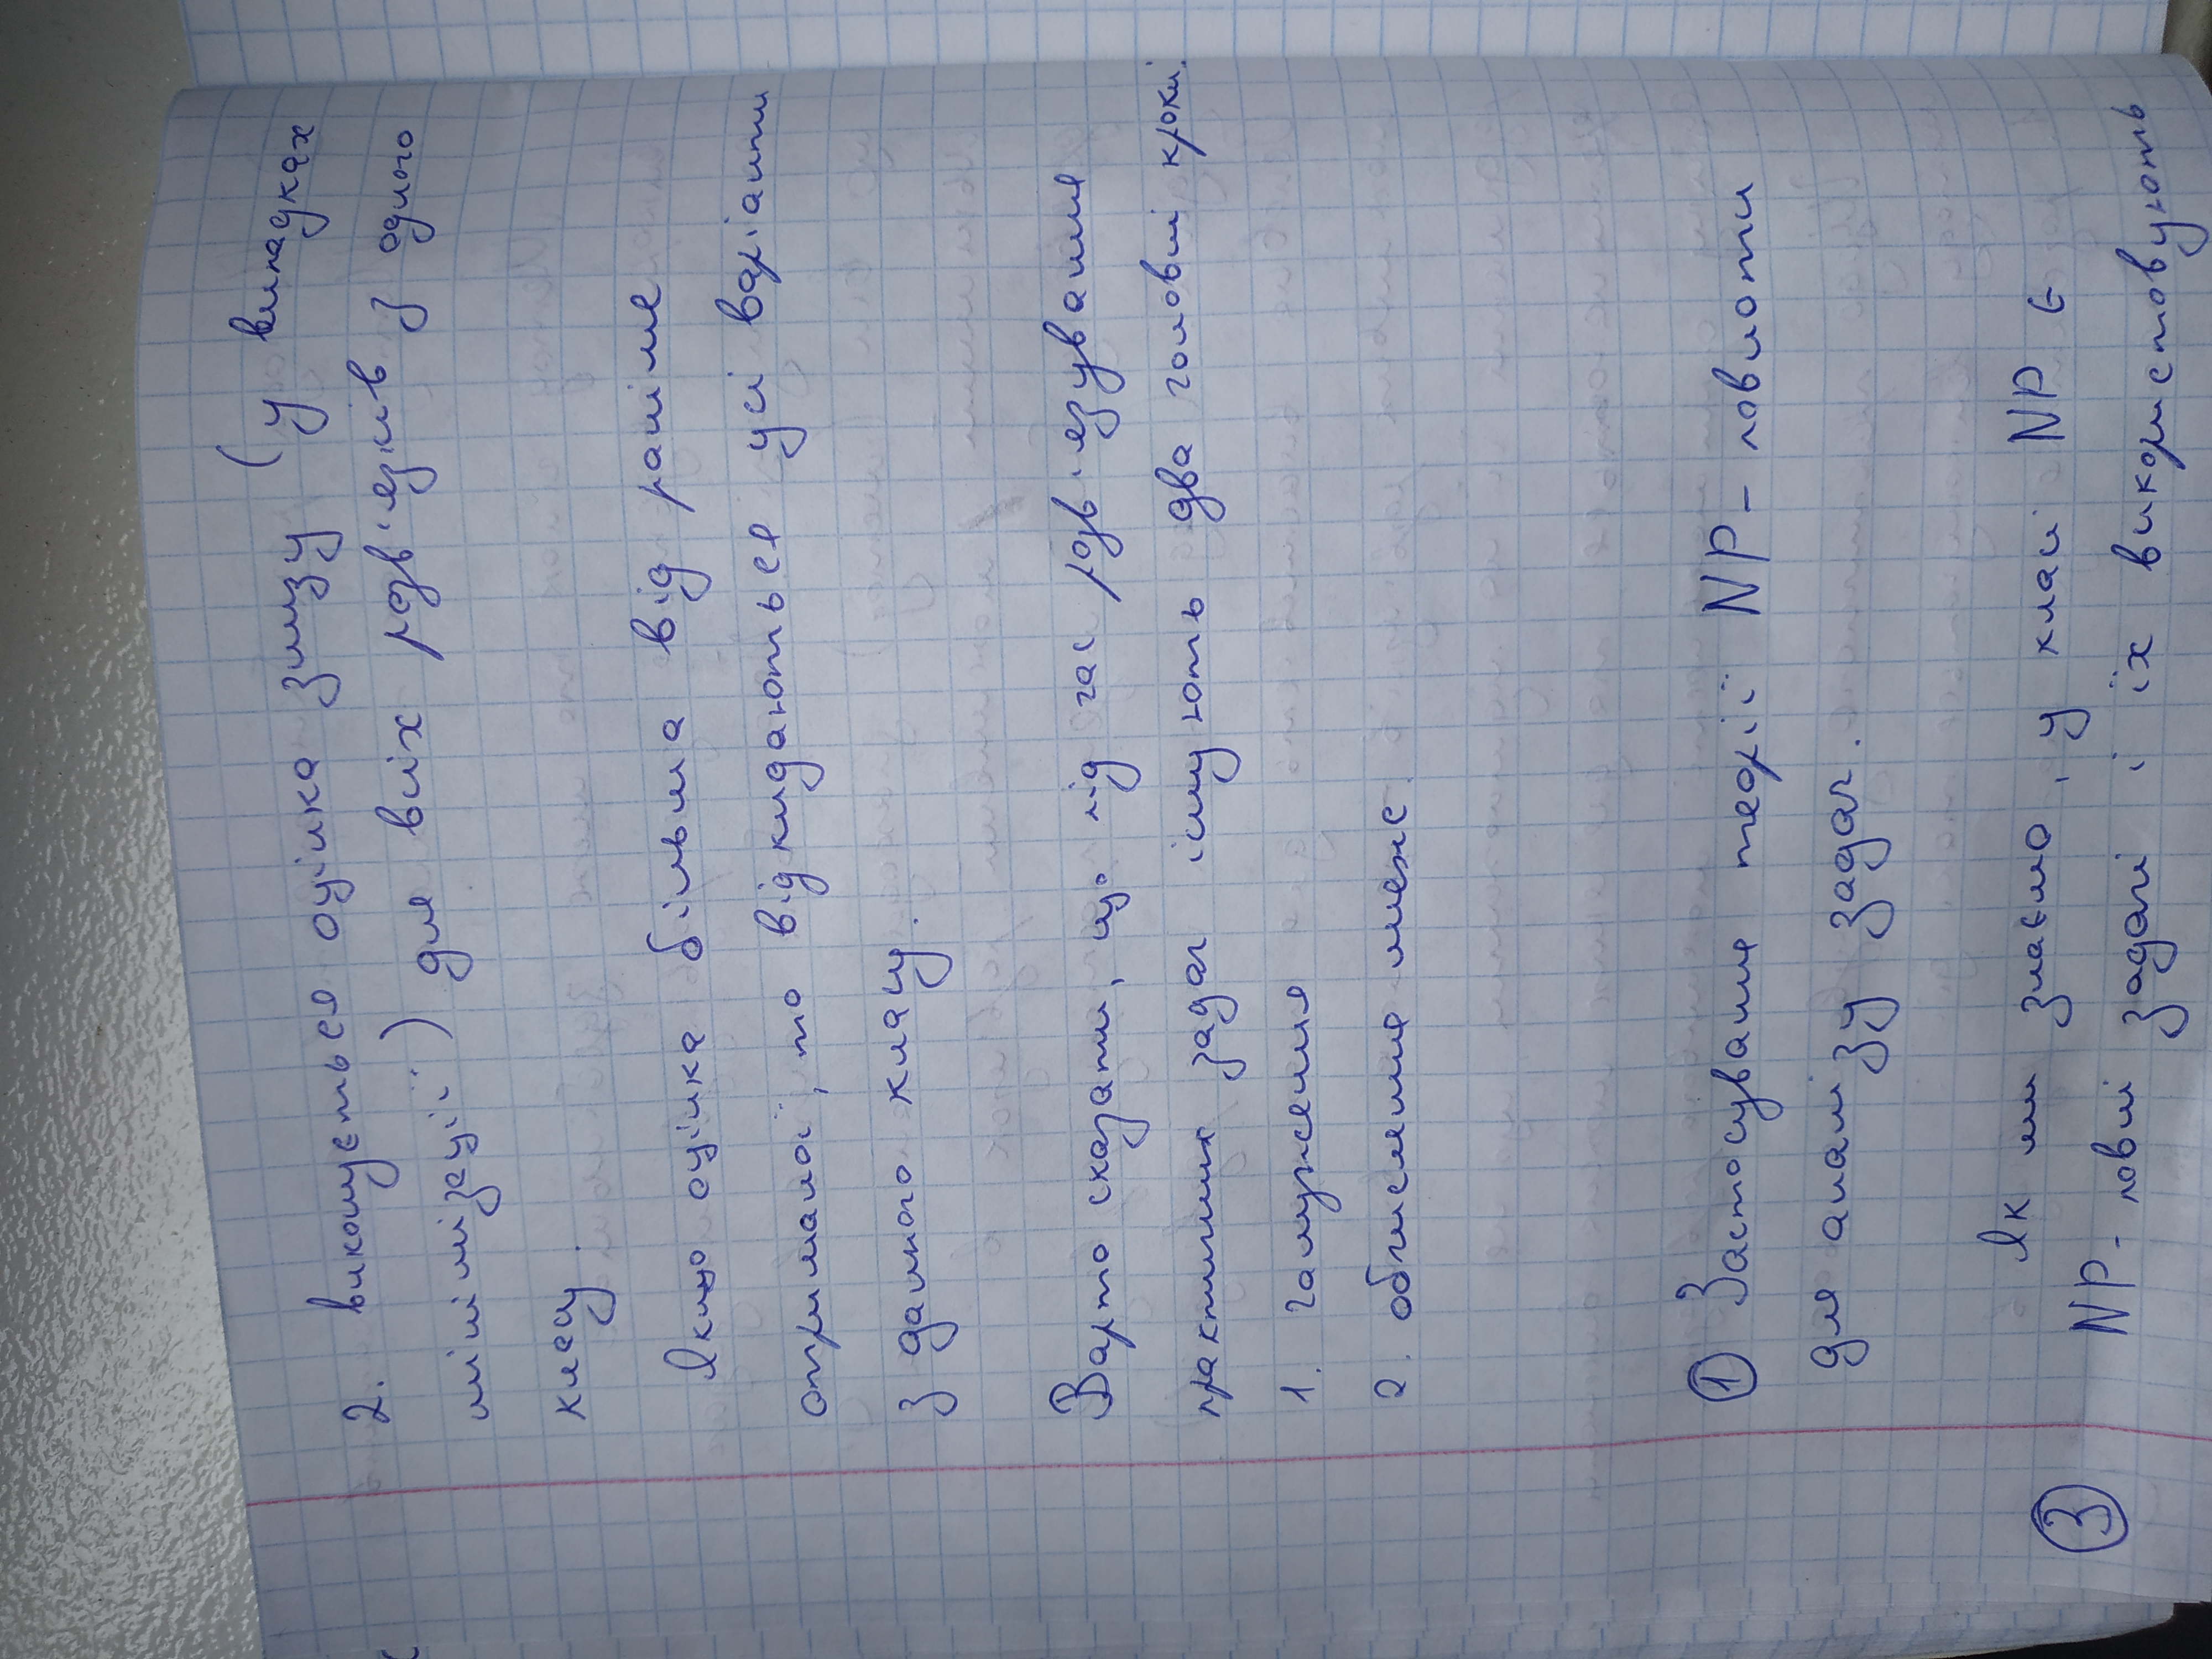 2. виконується оцінка знизу (у випадках
мінімізації) для всіх розв'язків з одного
класу.
Якщо оцінка більша від раніше
отриманої, то відкидаються усі варіанти
з данного класу.
Варто сказати, що під час розв'язування
практичних задач існують два головні кроки:
1. галуження
2. обчислення меж.
① Застосування теорії NP-повноти
для аналізу задач.
Як ми знаємо, у класі NP є
③
NP-повні задачі і їх використовують